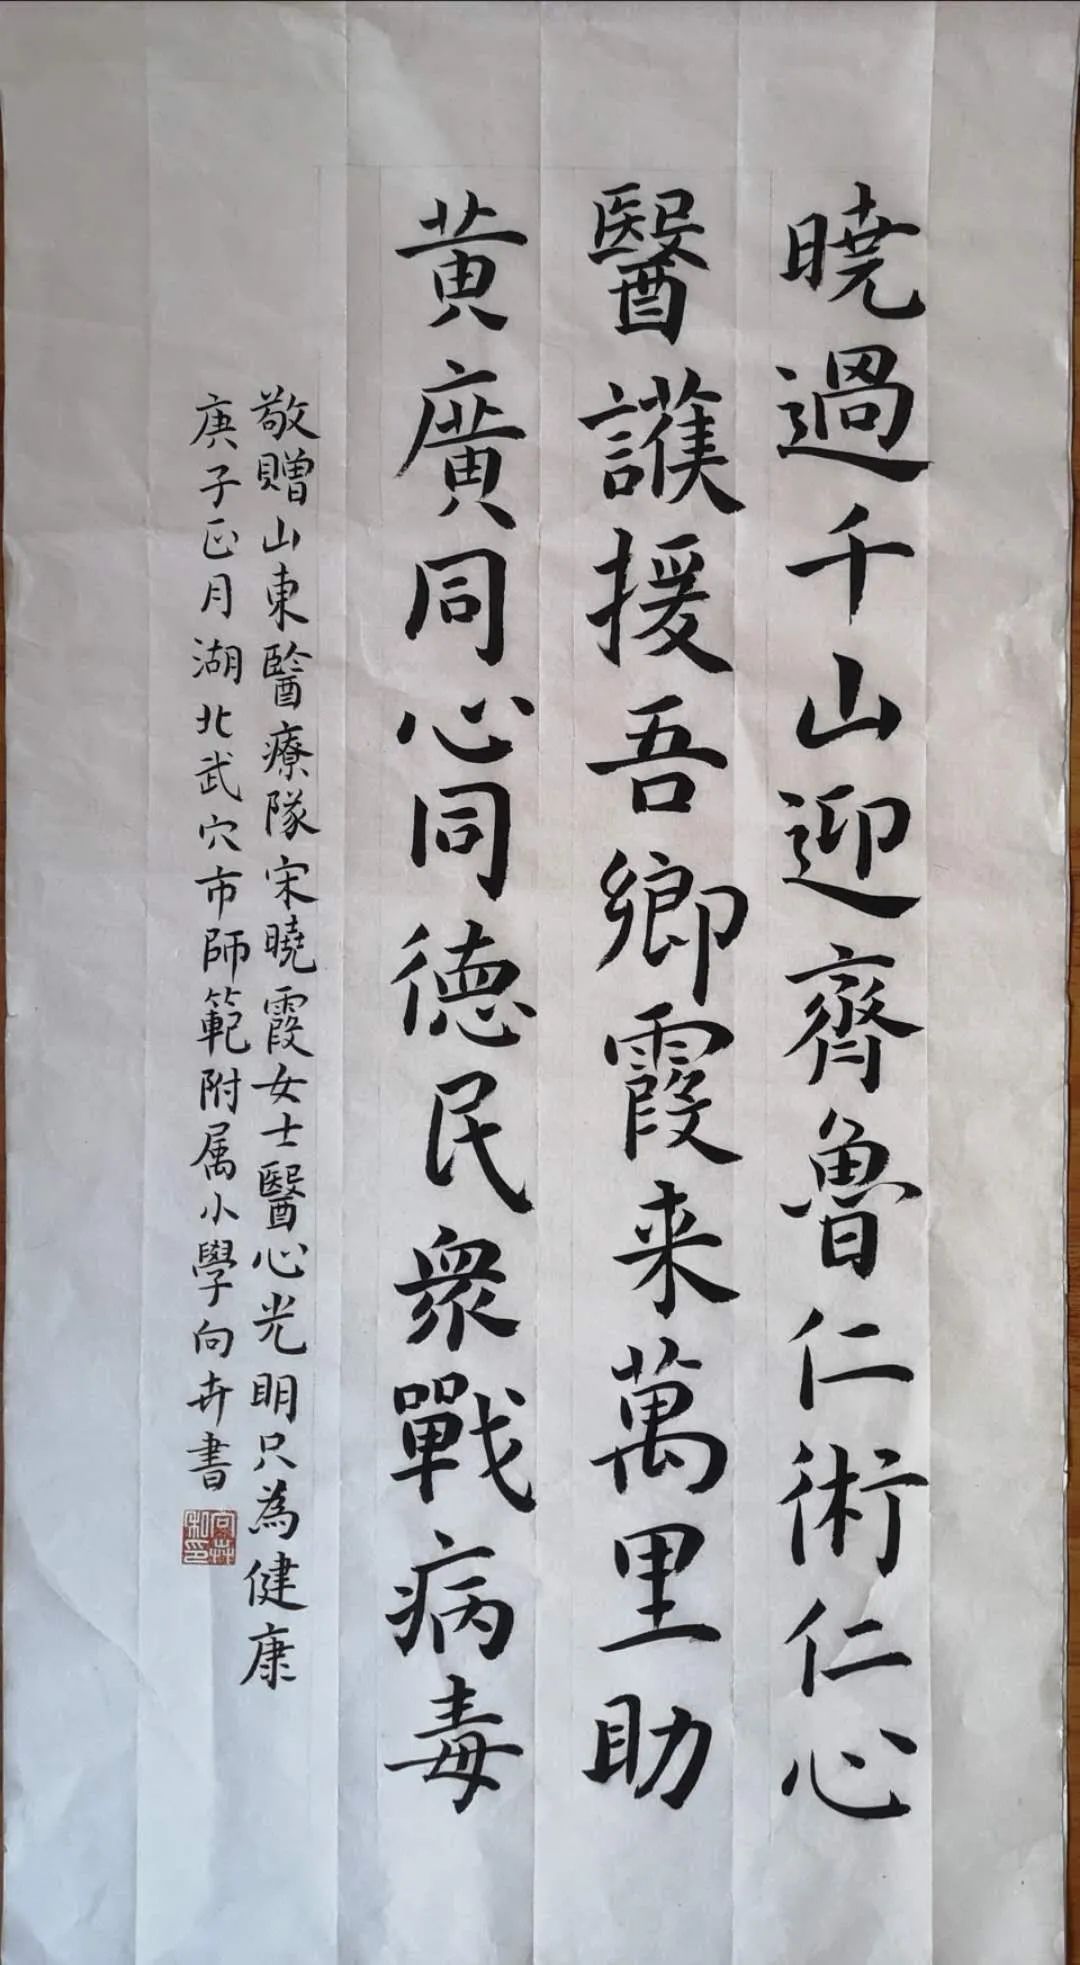 曉過千山迎齊魯仁術仁心
醫護援吾鄉霞来萬里助
黄廣同心同德民衆戰病毒
敬贈山東醫療隊宋曉霞女士醫心光明只為健康
庚子正月湖北武穴市師範附属小學向卉書
向卉私印